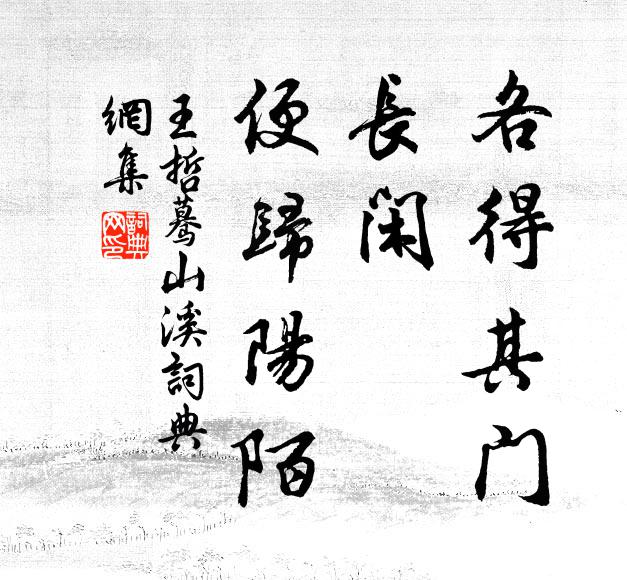 各得其门
長閑
便歸陽陌
王哲驀山溪詞典
網集
詞典網印